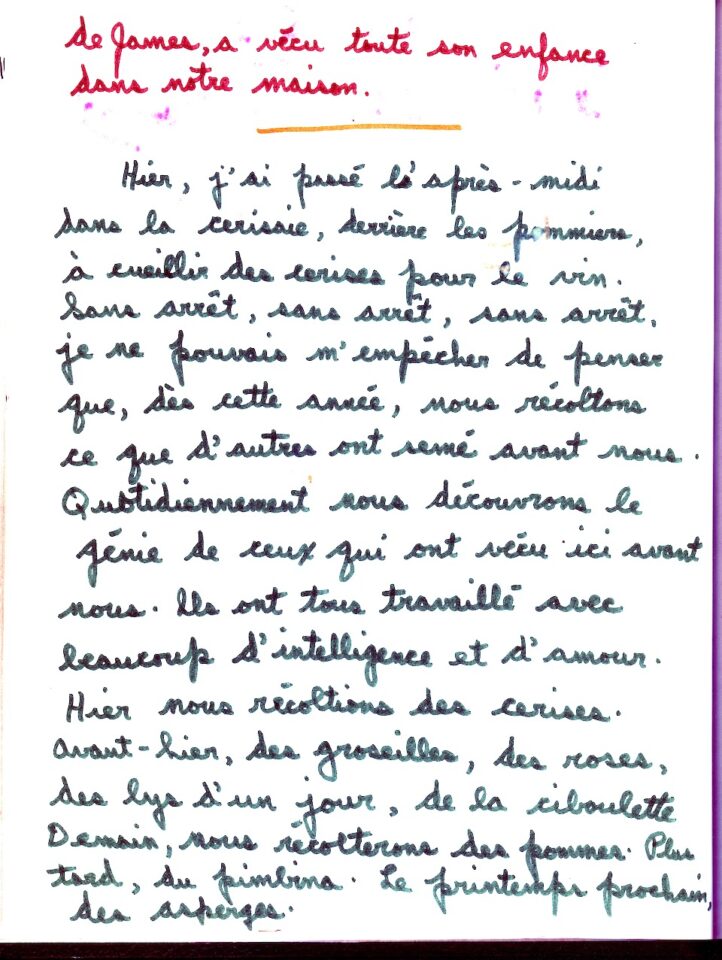 de James, a vécu toute son enfance
dans notre maison.
Hier, j'ai passé l'après-midi
dans la cerisaie, derrière les pommiers,
à cueillir des cerises pour le vin.
Sans arrêt, sans arrêt, sans arrêt,
je ne pouvais m'empêcher de penser
que, dès cette année, nous récoltons
ce que d'autres ont semé avant nous.
Quotidiennement nous découvrons le
génie de ceux qui ont vécu ici avant
nous. Ils ont tous travaillé avec
beaucoup d'intelligence et d'amour.
Hier nous récoltions des cerises.
Avant-hier, des groseilles, des roses,
des lys d'un jour, de la ciboulette
Demain, nous récolterons des pommes. Plus
tard, du pimbina. Le printemps prochain,
des asperges.